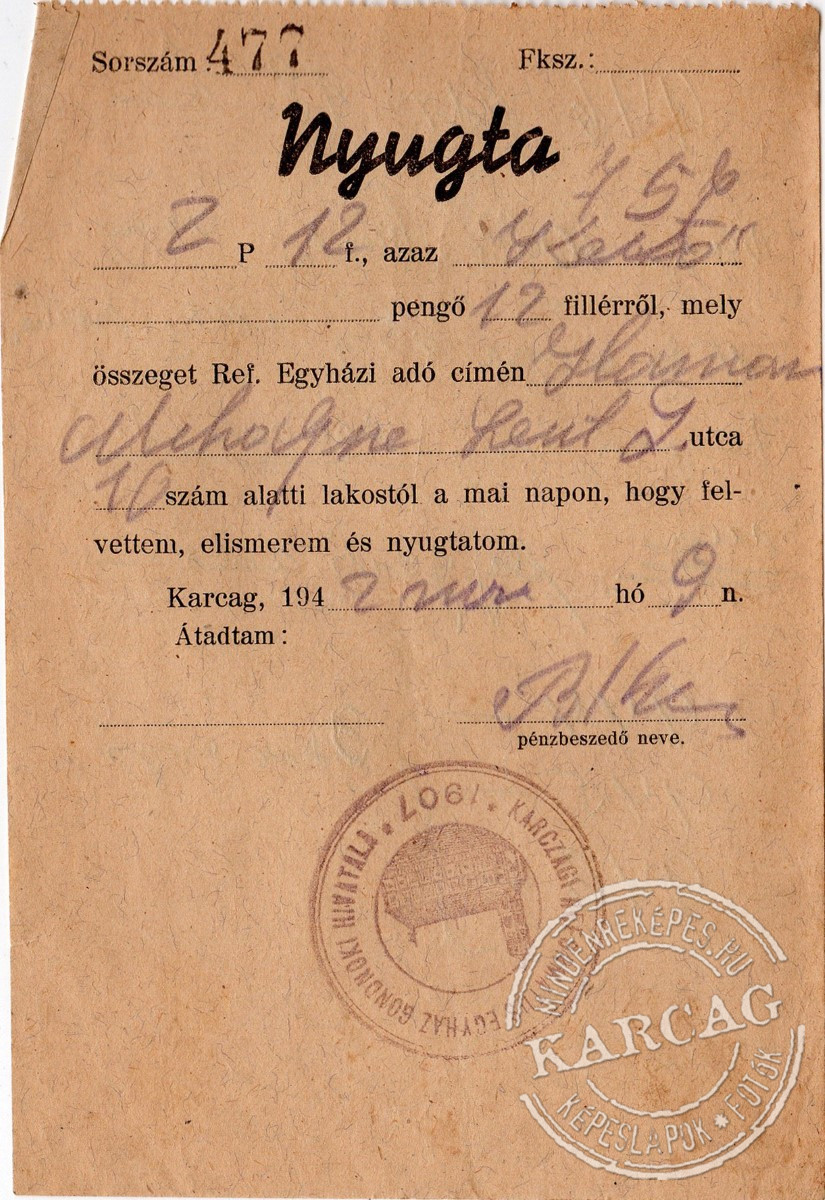 Sorszám 477 Fksz.:
Nyugta
2 P 12 f., azaz
pengő 12 fillérről, mely
összeget Ref. Egyházi adó címén
utca
10 szám alatti lakostól a mai napon, hogy fel-
vettem, elismerem és nyugtatom.
Karcag, 1942 hó 9 n.
Átadtam:
pénzbeszedő neve.
1907 * KARCZAGI
EGYHÁZ GONDNOKI HIVATALA *
MINDENREKÉPES.HU
KARCAG
KÉPESLAPOK * FOTÓK